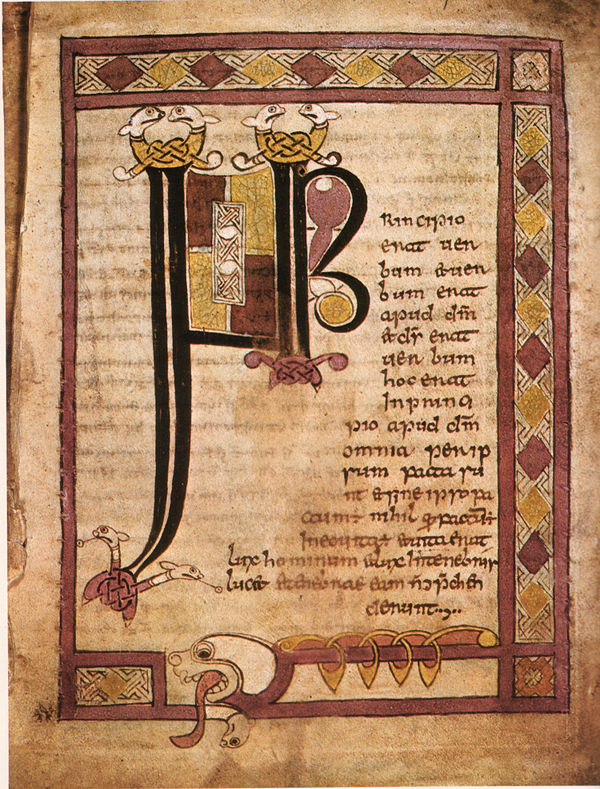 INP
Rincipio
erat uer
bum & uer
bum erat
apud dm̄
& ds̄ erat
uer bum
hoc erat
Inprinci
pio apud dm̄
omnia per ip
sum facta su
nt & sine ipso fa
ctum nihil
In eo uita & uita erat
lux hominum & lux In tenebris
lucet & tenebrae eam n̄ p̄chen
derunt